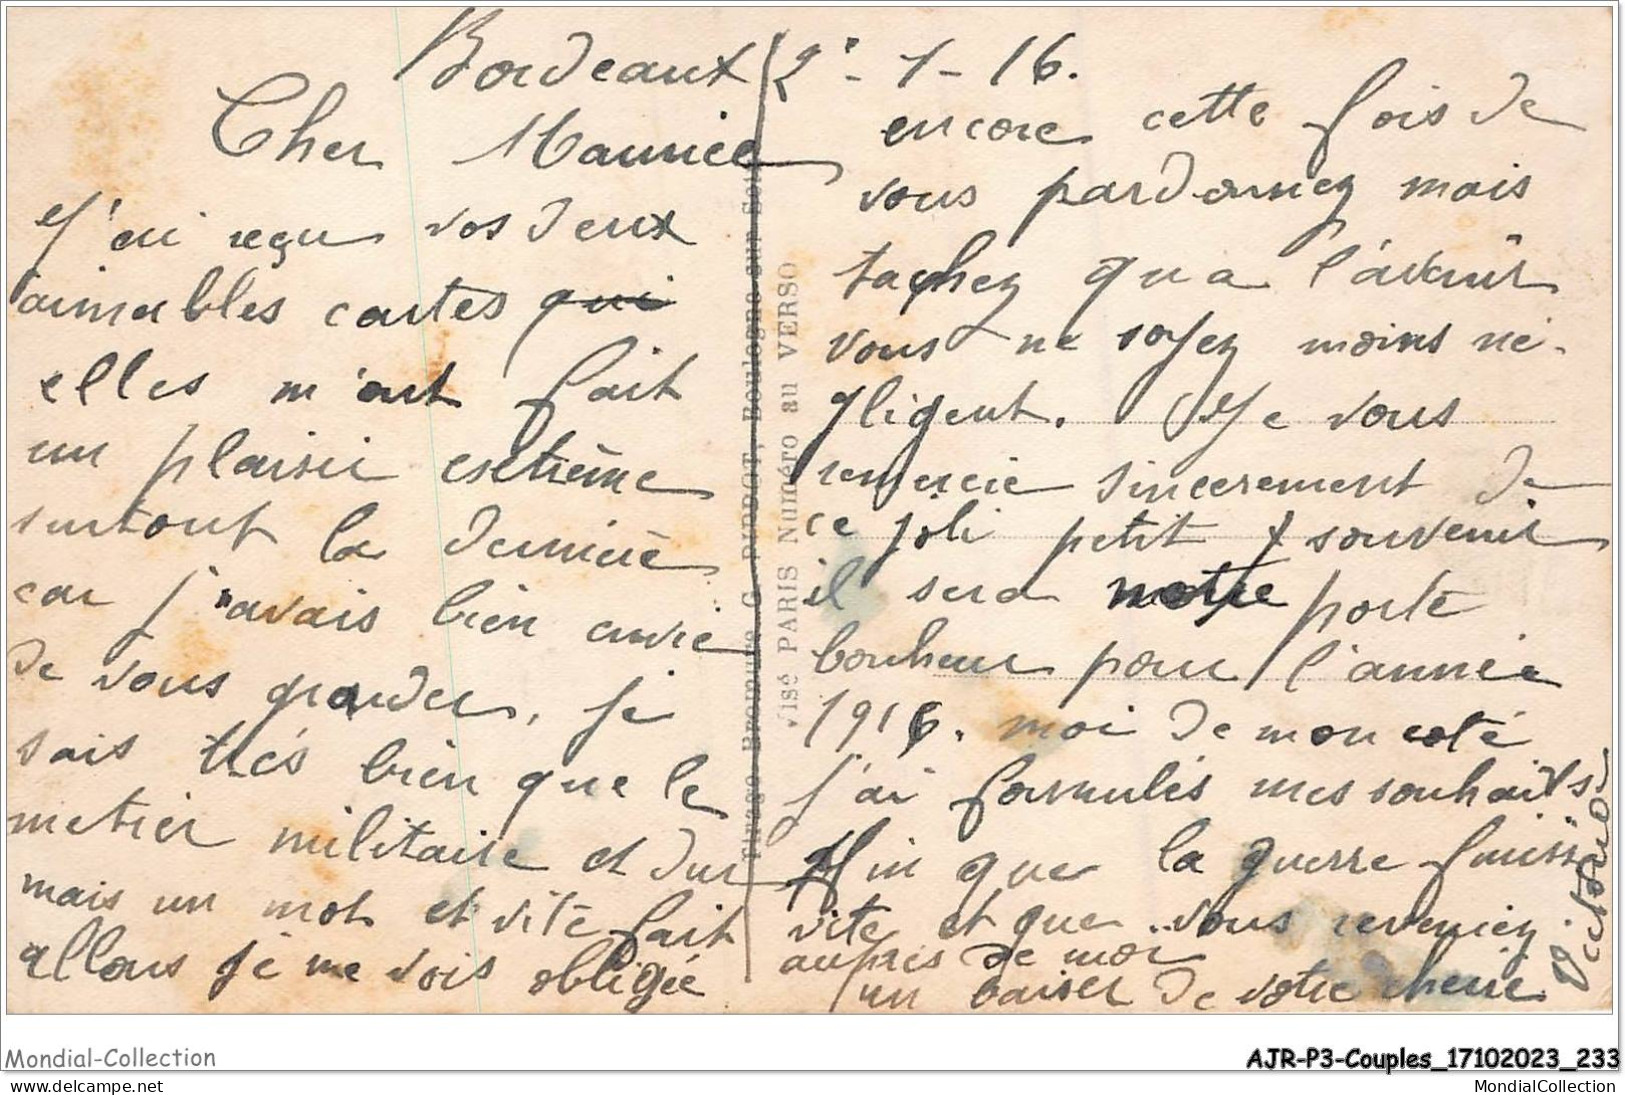 Bordeaux 2-1-16.
Cher Maurice
J'ai reçu vos deux
aimables cartes qui
elles m'ont fait
un plaisir esctrème
surtout la dernière
car j'avais bien envie
de vous gronder, je
sais très bien que le
metier militaire et dur
mais un mot et vite fait
allons je me vois obligée
encore cette fois de
vous pardonnez mais
tachez qu a l'avenir
vous ne soyez moins né-
gligent. Je vous
remercie sincerement de
ce joli petit souvenir
il sera notre porte
bonheur pour l'année
1916. moi de mon coté
j'ai formulés mes souhaits
Afin que la guerre finiss
vite et que vous reveniez
aupres de moi
un baiser de votre cherie
Victorine
Visé PARIS Numéro au VERSO
PIPROT, Boulogne-sur-Seine
Mondial-Collection
AJR-P3-Couples_17102023_233
www.delcampe.net
MondialCollection